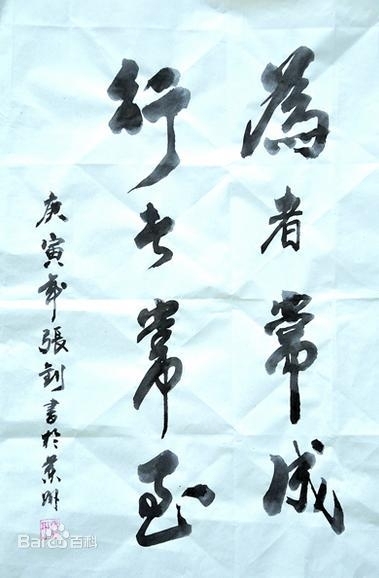 為者常成
行者常至
庚寅年張釗書於蘭州
Baidu百科